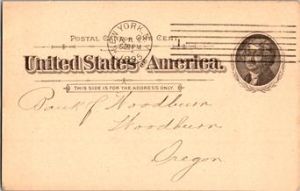 NEW YORK, N.Y.
POSTAL CARD ONE CENT.
United States America.
THIS SIDE IS FOR THE ADDRESS ONLY.
Bank of Woodburn
Woodburn
Oregon